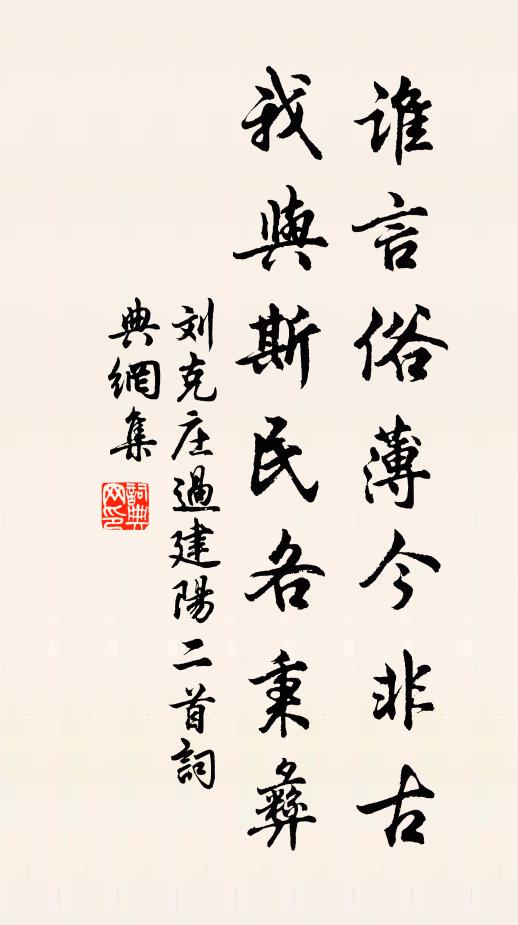 谁言俗薄今非古
我與斯民各秉彝
刘克庄過建陽二首詞
典網集
詞典
网印